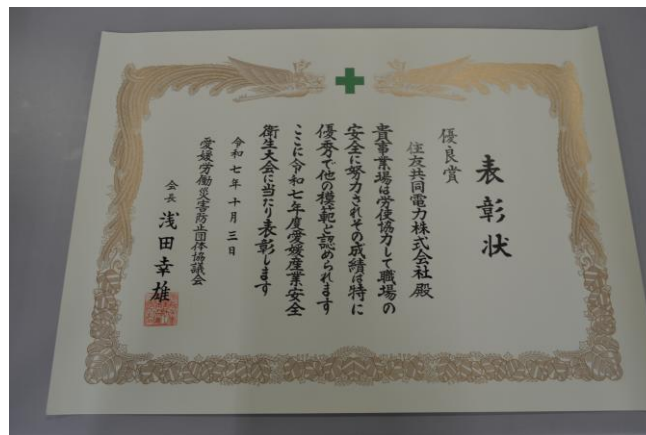 表彰状
優良賞
住友共同電力株式会社 殿
貴事業場は労使協力して職場の
安全に努力されその成績は特に
優秀で他の模範と認められます
ここに令和七年度愛媛産業安全
衛生大会に当たり表彰します
令和七年十月三日
愛媛労働災害防止団体協議会
会長 浅田幸雄